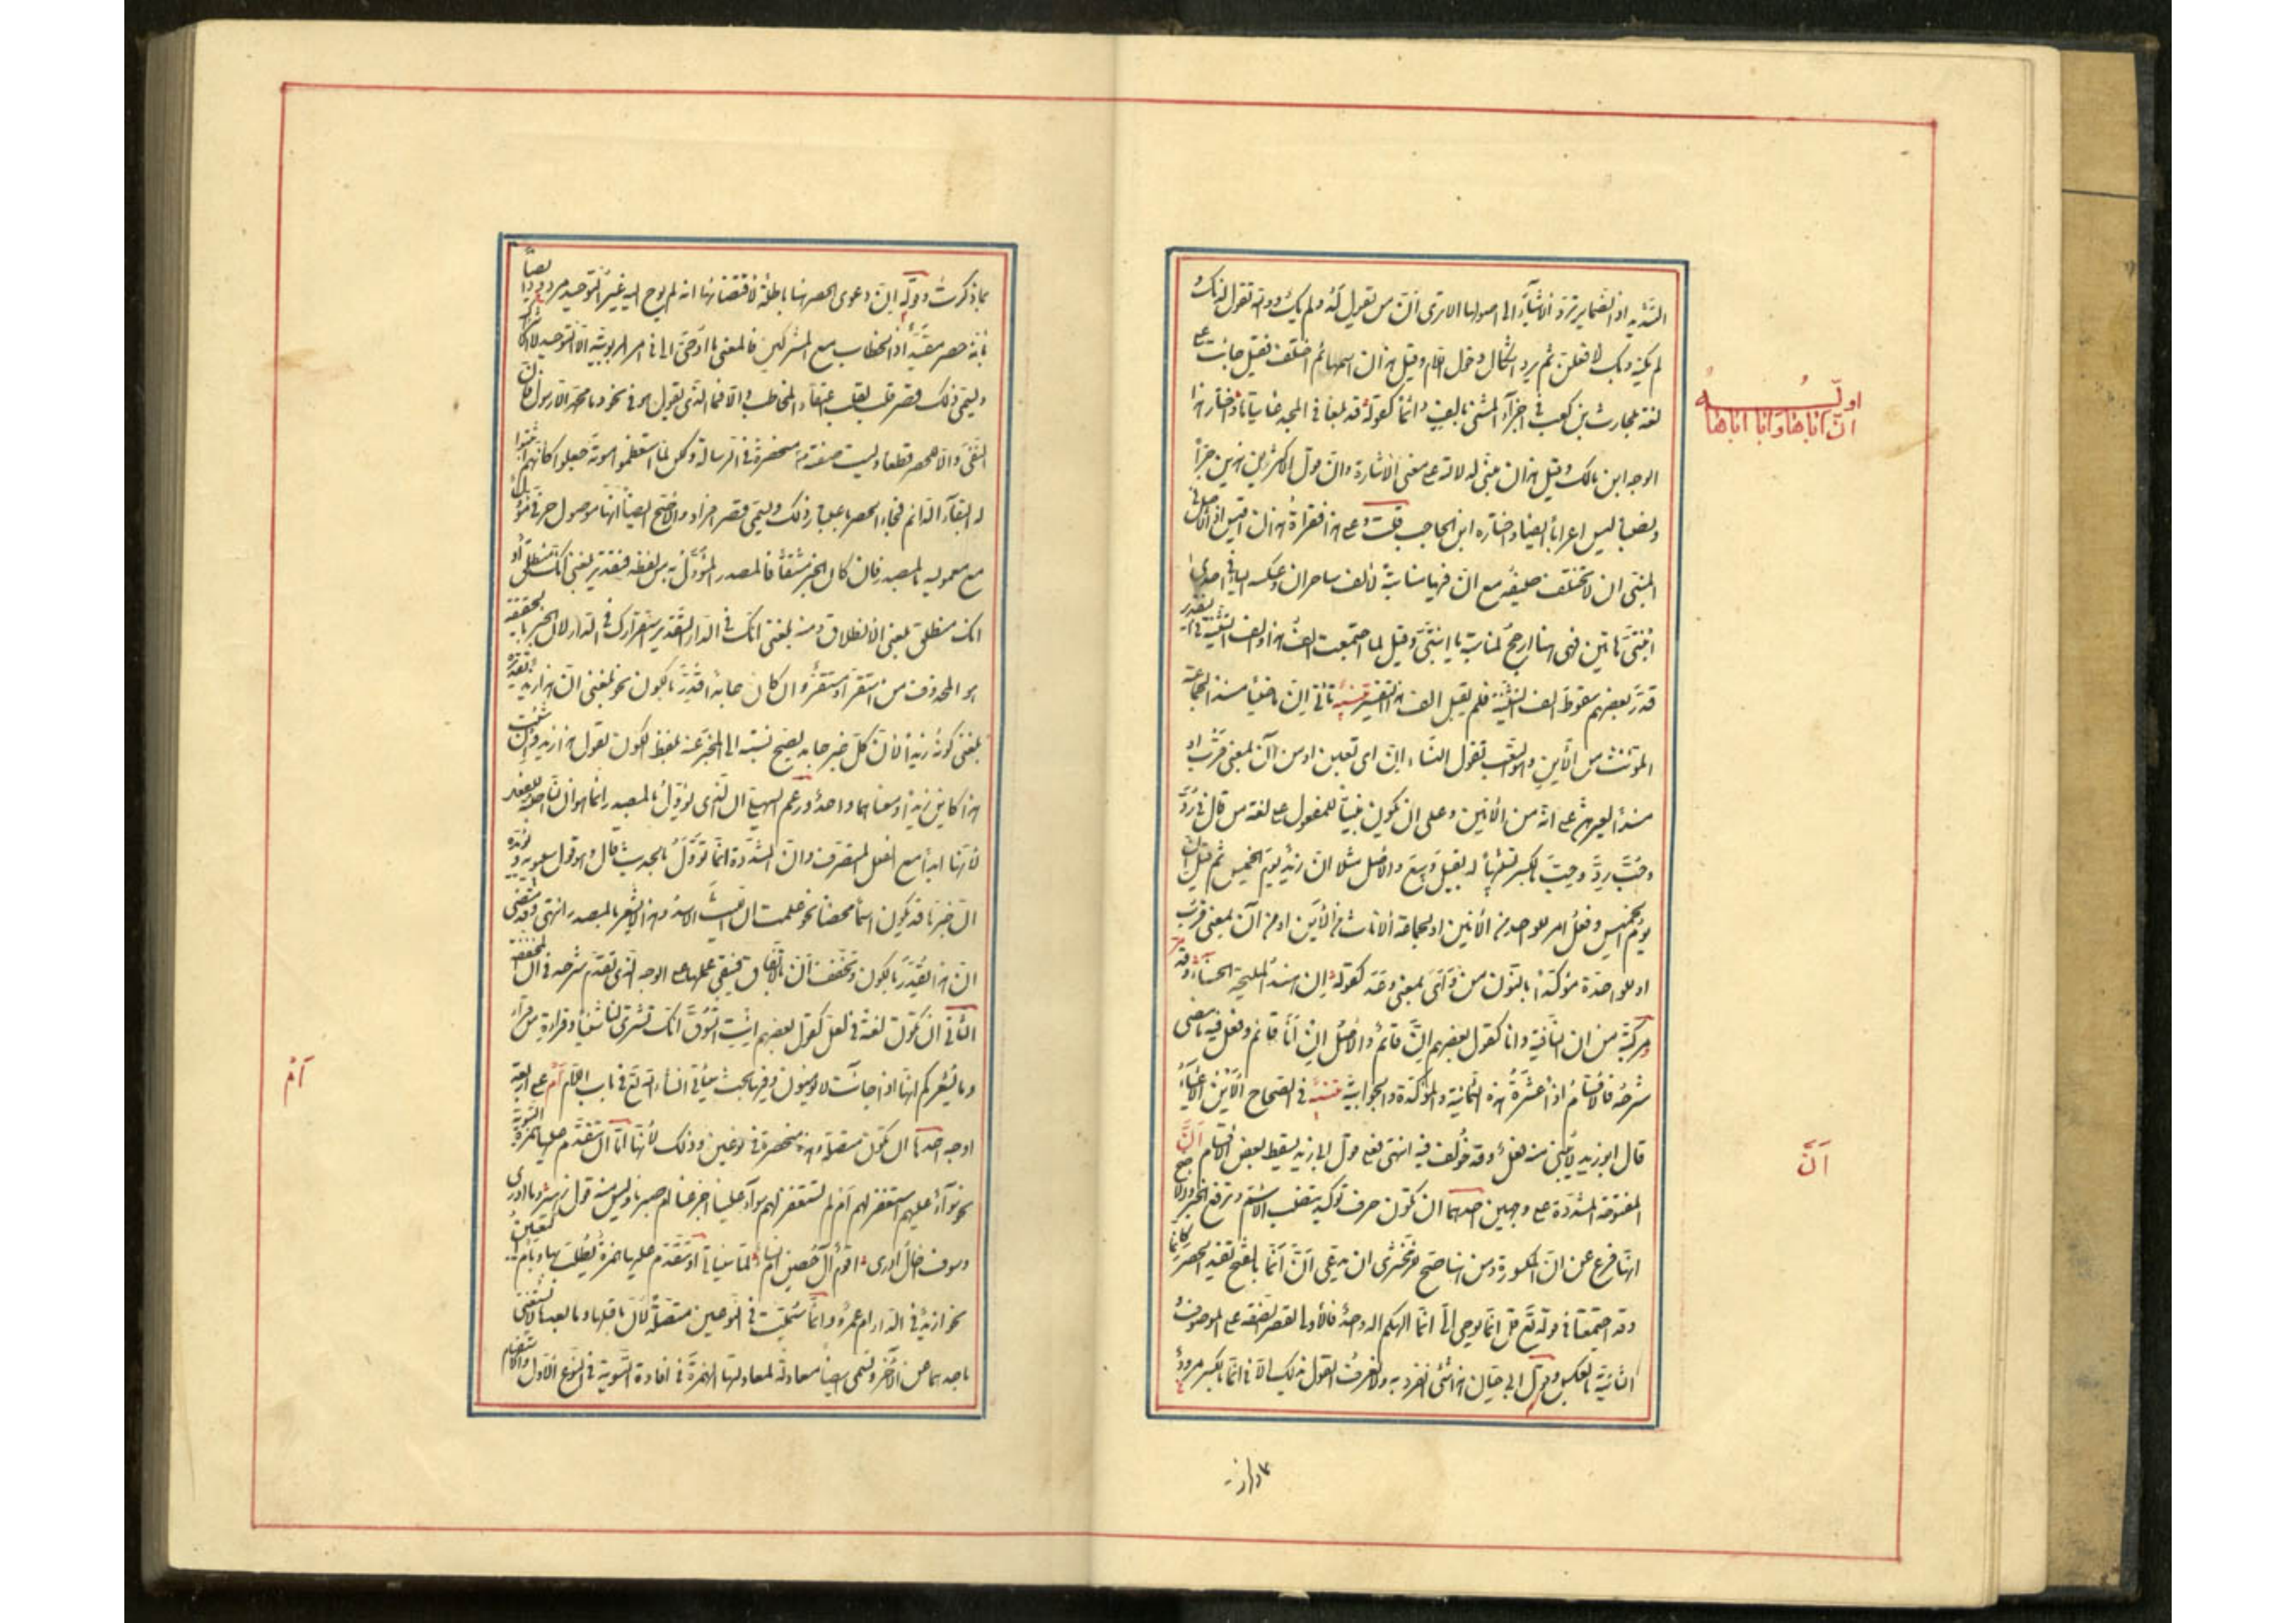 لشذ به اذ الضمائر ترد الاشياء الى اصولها الا ترى ان من يقول لد ولم يك ووالله تقول لدنك و
لم يكنه وبك لافعلن ثم يرد اشكال دخول اللام وقيل هذان اسمها ثم اختلف فقيل جاءت على
لغة بلحارث بن كعب في اجراء المثنى بالالف دائما كقوله قد بلغا في المجد غايتاها واختار هذا
الوجه ابن مالك وقيل هذان مبنى لدلالته على معنى الاشارة وان قول الاكثرين هذين جرا
ونصبا ليس اعرابا ايضا واختاره ابن الحاجب قلت وعلى هذا فقراءة هذان اقيس اذ الاصل في
المبنى ان لا تختلف صيغه مع ان فيها مناسبة لالف ساحران وعكسه الياء في احدى
ابنتى هاتين فهى هنا ارجح لمناسبة ياء ابنتى وقيل لما اجتمعت الف هذا والف التثنية في التقدير
قدر بعضهم سقوط الف التثنية فلم يقبل الف هذا التغيير تنبيه تأتى ان ماضيا مسندا لجماعة
المؤنث من الاين وهو التعب تقول النساء ان اى تعبن او من آن بمعنى قرب او
مسندا لغيرهن على انه من الانين وعلى ان يكون مبنيا للمفعول على لغة من قال في رد
وحب رد وحب بالكسر تشبيها له بقيل وبيع والاصل مثلا ان زيد يوم الخميس ثم قيل ان
يوم الخميس وفعل امر للواحد من الانين او لجماعة الاناث من الاين او من آن بمعنى قرب
او للواحدة مؤكدا بالنون من وأى بمعنى وعد كقوله ان هند المليحة الحسناء وقد مر
ومركبة من ان النافية وانا كقول بعضهم ان قائم والاصل ان انا قائم وفعل فيه ما مضى
شرحه فالاقسام اذا عشرة هذه الثمانية والمؤكدة والجوابية تنبيه في الصحاح الاين الاعياء
قال ابو زيد لا يبنى منه فعل وقد خولف فيه انتهى فعلى قول ابى زيد يسقط بعض الاقسام أنّ
المفتوحة المشددة على وجهين احدهما ان تكون حرف توكيد ينصب الاسم وترفع الخبر والاصح
انها فرع عن ان المكسورة ومن هنا صح للزمخشرى ان يدعى ان انما بالفتح تفيد الحصر كانما
وقد اجتمعتا في قوله تع قل انما يوحى الى انما الهكم اله واحد فالاولى لقصر الصفة على الموصوف
والثانية بالعكس وقول ابى حيان هذا شئ انفرد به ولا يعرف القول بذلك الا في انما بالكسر مردود
أنّ
بما ذكرت وقوله ان دعوى الحصر هنا باطلة لاقتضائها انه لم يوح اليه غير التوحيد مردود ايضا
بانه حصر مقيد اذ الخطاب مع المشركين فالمعنى ما اوحى الى في امر الربوبية الا التوحيد لا الاشراك
ويسمى ذلك قصر قلب لقلب اعتقاد المخاطب والا فما الذى يقول هو في نحو وما محمد الا رسول فان
النفى والا للحصر قطعا وليست صفته منحصرة في الرسالة ولكن لما استعظموا موته جعلوا كانهم اثبتوا
له البقاء الدائم فجاء الحصر باعتبار ذلك ويسمى قصر افراد والاصح ايضا انها موصول حرفى مؤول
مع معموليه بالمصدر فان كان الخبر مشتقا فالمصدر المؤول به من لفظه فتقدير بلغنى انك تنطلق او
انك منطلق بلغنى الانطلاق ومنه بلغنى انك في الدار التقدير استقرارك في الدار لان الخبر بالحقيقة
هو المحذوف من استقر او مستقر وان كان جامدا قدر بالكون نحو بلغنى ان هذا زيد تقديره
بلغنى كونه زيدا لان كل خبر جامد يصح نسبته الى المخبر عنه بلفظ الكون تقول هذا زيد وان شئت
هذا كاين زيدا ومعناهما واحد وزعم السهيلى ان الذى يؤول بالمصدر انما هو ان الناصبة للفعل
لانها ابدا مع الفعل المتصرف وان المشددة انما تؤول بالحديث قال وهو قول سيبويه ويؤيده
ان خبرها قد يكون اسما محضا نحو علمت ان الليث الاسد وهذا لا يشعر بالمصدر انتهى وقد مضى
ان هذا يقدر بالكون وتخفف ان بالاتفاق فيبقى عملها على الوجه الذى تقدم شرحه في ان المخففة
الثانى ان تكون لغة في لعل كقول بعضهم ائت السوق انك تشترى لنا شيئا وقراءة من قرأ
وما يشعركم انها اذا جاءت لا يؤمنون وفيها بحث سيأتى انشاء الله تع في باب اللام أم على اربعة
اوجه احدها ان تكون متصلة وهى منحصرة في نوعين وذلك لانها اما ان تتقدم عليها همزة التسوية
نحو سواء عليهم استغفرت لهم ام لم تستغفر لهم سواء علينا اجزعنا ام صبرنا وليس منه قول زهير وما ادرى
وسوف اخال ادرى اقوم آل حصن ام نساء لما سيأتى او تتقدم عليها همزة يطلب بها وبام التعيين
نحو ازيد في الدار ام عمرو وانما سميت في النوعين متصلة لان ما قبلها وما بعدها لا يستغنى
باحدهما عن الآخر وتسمى ايضا معادلة لمعادلتها الهمزة في افادة التسوية في النوع الاول والاستفهام
أم